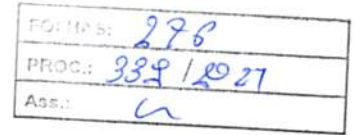 FOLHAS: 276
PROC.: 339 / 2021
Ass.: